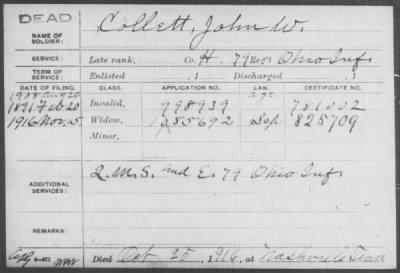 DEAD
NAME OF SOLDIER: Collett, John W.
SERVICE: Late rank, Co. H, 79 Reg't Ohio Inf.
TERM OF SERVICE: Enlisted , 1 Discharged , 1
DATE OF FILING. CLASS. APPLICATION NO. LAW. CERTIFICATE NO.
1908 Aug 20 age
1891 Feb 20 Invalid, 998939 781002
1916 Nov. 15 Widow, 1085692 Sep. 825709
Minor,
ADDITIONAL SERVICES: Q.M.S. and E. 79 Ohio Inf.
REMARKS:
Died Oct 25, 1916, at Nashville Tenn